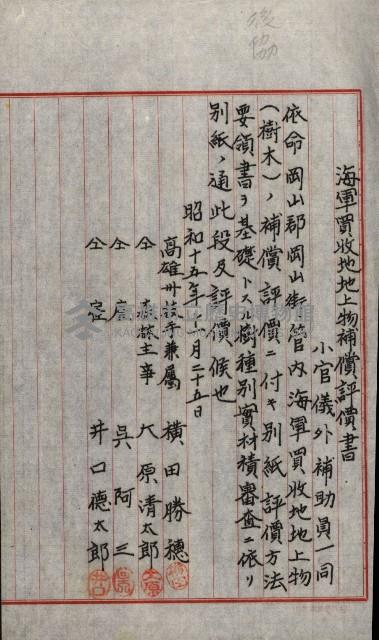 後協
海軍買收地地上物補償評價書
小官儀外補助員一同
依命岡山郡岡山街管內海軍買收地地上物
(樹木)ノ補償評價ニ付キ別紙評價方法
要領書ヲ基礎トスル樹種別實材積審查ニ依リ
別紙ノ通此段及評價候也
昭和十五年 月二十五日
高雄州技手兼屬 橫田勝穗
仝 森林主事 大原清太郎
仝 雇 吳阿三
仝 雇 井口德太郎